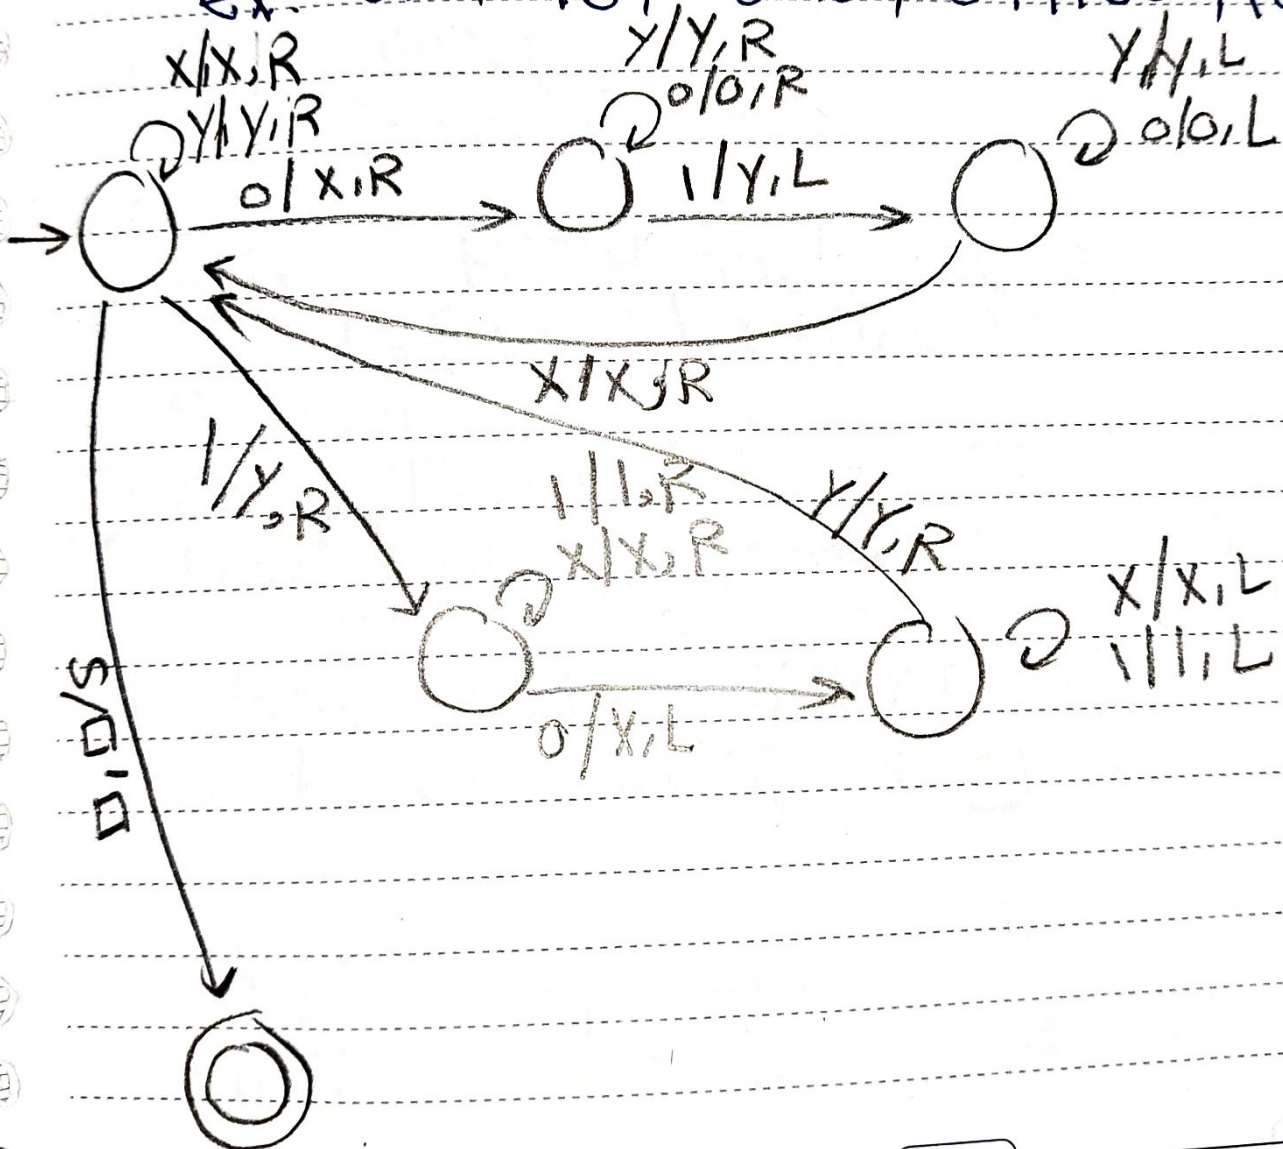 x/x,R
y/y,R
0/x,R
y/y,R
0/0,R
1/y,L
y/y,L
0/0,L
x/x,R
1/y,R
1/1,R
x/x,R
y/y,R
0/x,L
x/x,L
1/1,L
□,□/S